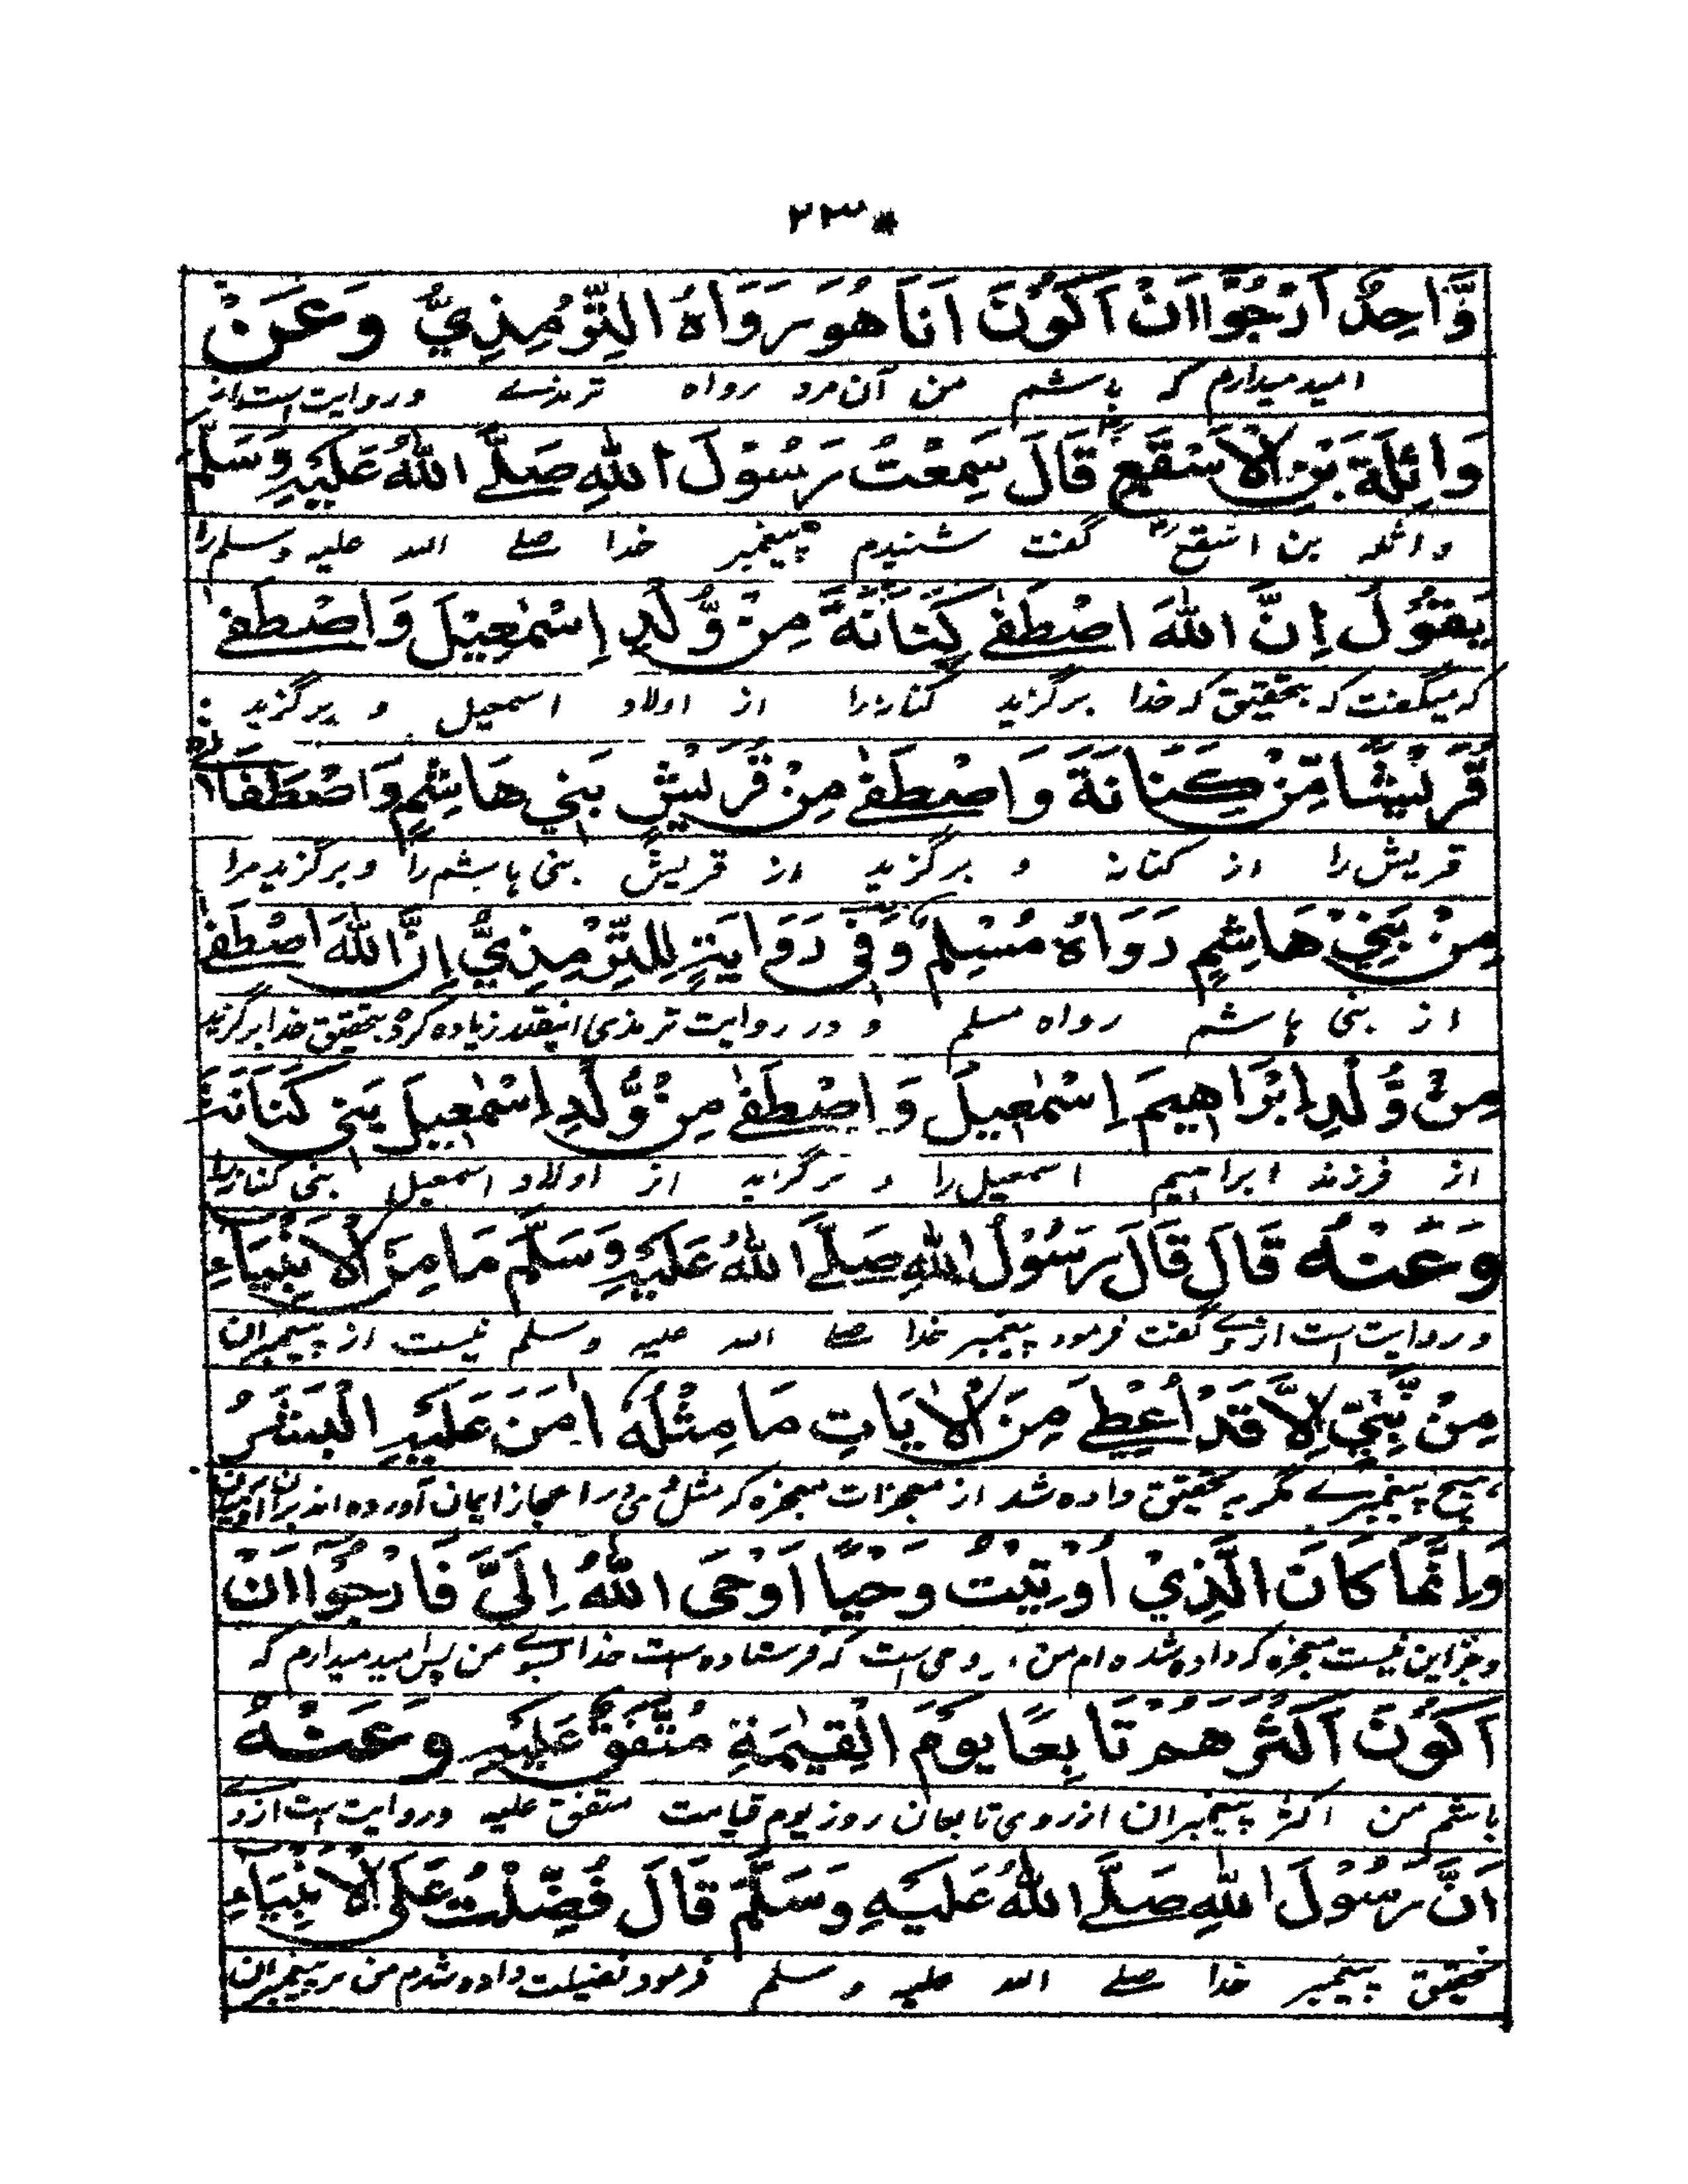 ۲۳*
وَّاحِدٌ اَرْجُوْا اَنْ اَكُوْنَ اَنَا هُوَ رَوَاهُ التِّرْمِذِيُّ وَعَنْ
امید میدارم کہ باشم من آن مرد رواہ ترمذے و روایت است از
وَاثِلَةَ بْنِ الْاَسْقَعِ قَالَ سَمِعْتُ رَسُوْلَ اللّٰهِ صَلَّے اللّٰهُ عَلَيْهِ وَسَلَّمَ
واثلہ بن اسقع گفت شنیدم پیغمبر خدا صلے اللہ علیہ وسلم را
يَقُوْلُ اِنَّ اللّٰهَ اصْطَفٰے كِنَانَةَ مِنْ وُّلْدِ اِسْمٰعِيْلَ وَاصْطَفٰے
کہ میگفت کہ بتحقیق کہ خدا برگزید کنانہ را از اولاد اسمعیل و برگزید
قُرَيْشًا مِّنْ كِنَانَةَ وَاصْطَفٰے مِنْ قُرَيْشٍ بَنِي هَاشِمٍ وَاصْطَفَانِے
قریش را از کنانہ و برگزید از قریش بنی ہاشم را و برگزید مرا
مِنْ بَنِيْ هَاشِمٍ رَوَاهُ مُسْلِمٌ وَفِي رَوَايَةٍ لِلتِّرْمِذِيُّ اِنَّ اللّٰهَ اصْطَفٰے
از بنی ہاشم رواہ مسلم و در روایت ترمذی اینقدر زیادہ کرد بتحقیق خدا برگزید
مِنْ وُّلْدِ اِبْرَاهِيْمَ اِسْمٰعِيْلَ وَاصْطَفٰے مِنْ وُّلْدِ اِسْمٰعِيْلَ بَنِي كَنَانَةَ
از فرزند ابراہیم اسمعیل را و برگزید از اولاد اسمعیل بنی کنانہ را
وَعَنْهُ قَالَ قَالَ رَسُوْلُ اللّٰهِ صَلَّے اللّٰهُ عَلَيْهِ وَسَلَّمَ مَا مِنَ الْاَنْبِيَاءِ
و روایت است از وے گفت فرمود پیغمبر خدا صلے اللہ علیہ وسلم نیست از پیغمبران
مِنْ نَّبِيٍّ اِلَّا قَدْ اُعْطِيَ مِنَ الْاٰيَاتِ مَا مِثْلُهُ اٰمَنَ عَلَيْهِ الْبَشَرُ
ہیچ پیغمبرے مگر بہ تحقیق دادہ شد از معجزات معجزہ کہ مثل وی را ایمان آوردہ اند بران
وَاِنَّمَا كَانَ الَّذِيْ اُوْتِيْتُ وَحْيًا اَوْحَى اللّٰهُ اِلَيَّ فَاَرْجُوْا اَنْ
و جز این نیست معجزہ کہ دادہ شدہ ام من، وحی است کہ فرستادہ است خدا بسوے من پس امید میدارم کہ
اَكُوْنَ اَكْثَرَهُمْ تَابِعًا يَوْمَ الْقِيٰمَةِ مُتَّفَقٌ عَلَيْهِ وَعَنْهُ
باشم من اکثر پیغمبران از روی تابعان روز یوم قیامت متفق علیہ و روایت است از وے
اَنَّ رَسُوْلَ اللّٰهِ صَلَّے اللّٰهُ عَلَيْهِ وَسَلَّمَ قَالَ فُضِّلْتُ عَلَى الْاَنْبِيَاءِ
تحقیق پیغمبر خدا صلے اللہ علیہ وسلم فرمود فضیلت دادہ شدم من بر پیغمبران